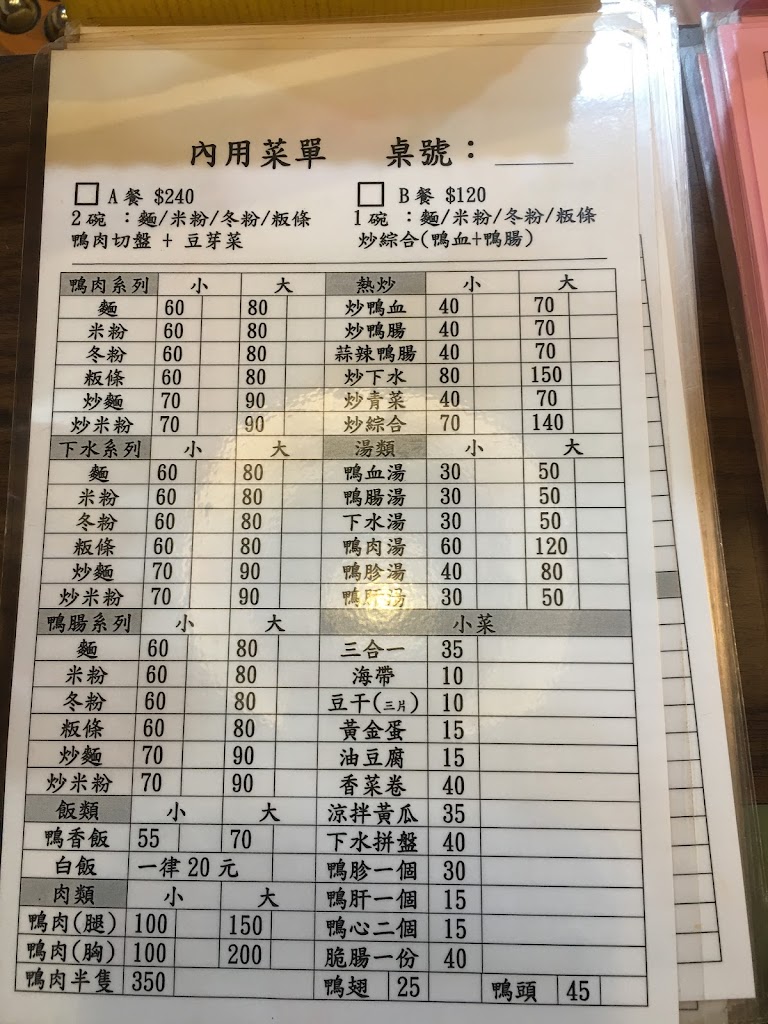 內用菜單 桌號：
A餐 $240 B餐 $120
2碗 ：麵/米粉/冬粉/粄條 1碗 ：麵/米粉/冬粉/粄條
鴨肉切盤 + 豆芽菜 炒綜合(鴨血+鴨腸)
鴨肉系列 小 大 熱炒 小 大
麵 60 80 炒鴨血 40 70
米粉 60 80 炒鴨腸 40 70
冬粉 60 80 蒜辣鴨腸 40 70
粄條 60 80 炒下水 80 150
炒麵 70 90 炒青菜 40 70
炒米粉 70 90 炒綜合 70 140
下水系列 小 大 湯類 小 大
麵 60 80 鴨血湯 30 50
米粉 60 80 鴨腸湯 30 50
冬粉 60 80 下水湯 30 50
粄條 60 80 鴨肉湯 60 120
炒麵 70 90 鴨胗湯 40 80
炒米粉 70 90 鴨肝湯 30 50
鴨腸系列 小 大 小菜
麵 60 80 三合一 35
米粉 60 80 海帶 10
冬粉 60 80 豆干(三片) 10
粄條 60 80 黃金蛋 15
炒麵 70 90 油豆腐 15
炒米粉 70 90 香菜卷 40
飯類 小 大 涼拌黃瓜 35
鴨香飯 55 70 下水拼盤 40
白飯 一律20元 鴨胗一個 30
肉類 小 大 鴨肝一個 15
鴨肉(腿) 100 150 鴨心二個 15
鴨肉(胸) 100 200 脆腸一份 40
鴨肉半隻 350 鴨翅 25 鴨頭 45